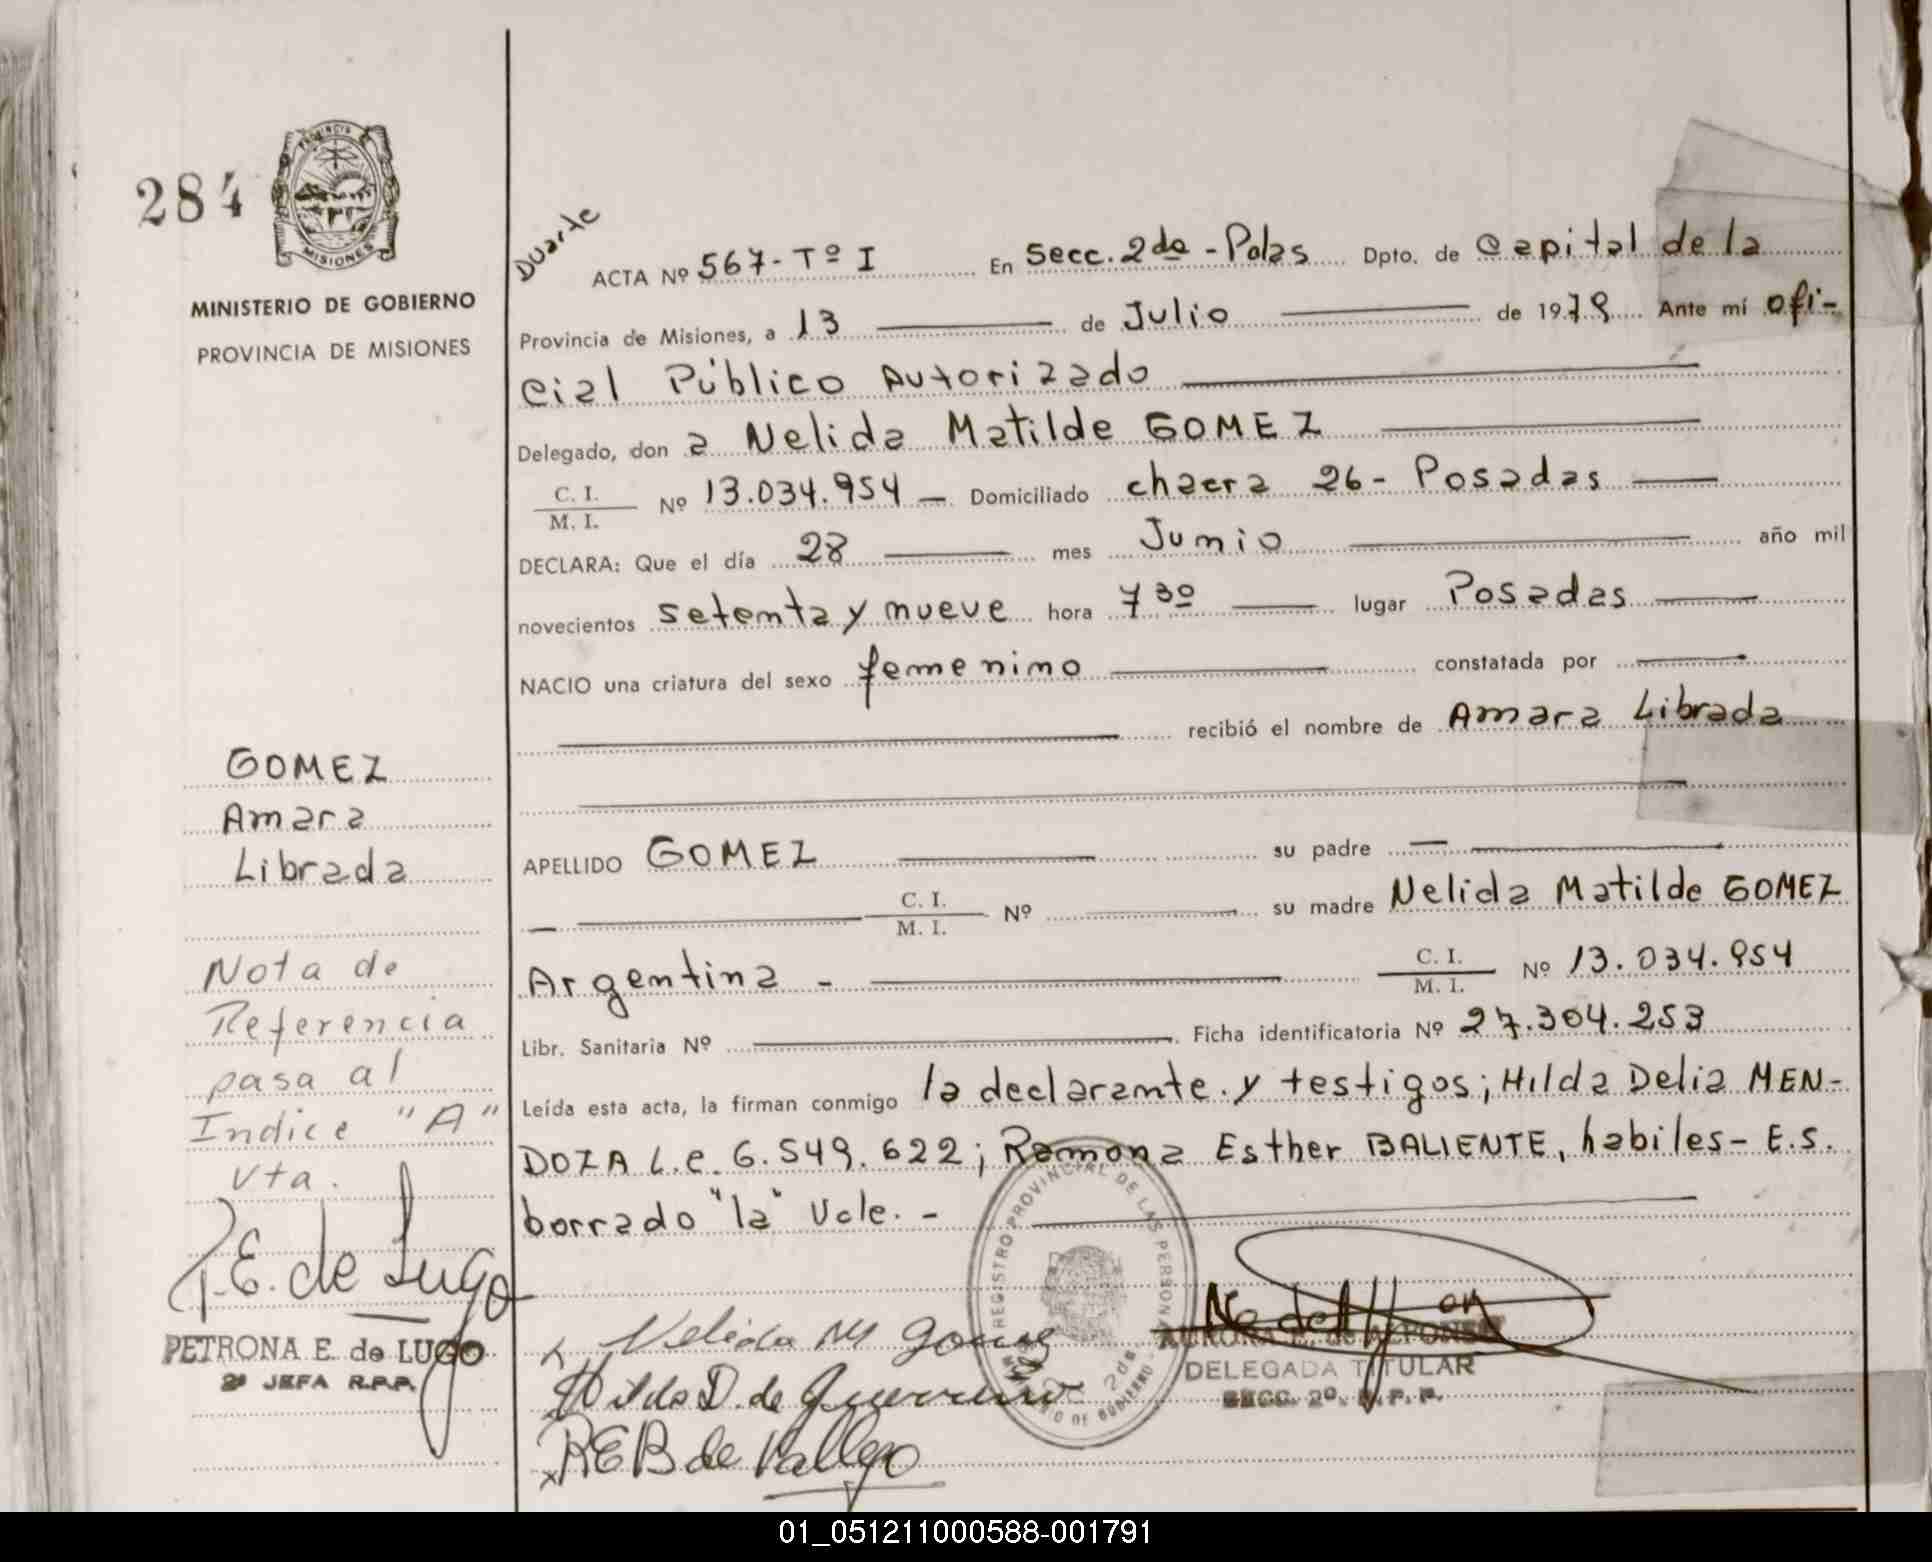 284
PROVINCIA
MISIONES
MINISTERIO DE GOBIERNO
PROVINCIA DE MISIONES
Duarte
ACTA Nº 567-Tº I En Secc. 2da - Pdas Dpto. de Capital de la
Provincia de Misiones, a 13 de Julio de 1979 Ante mí ofi-
cial Público Autorizado
Delegado, don a Nelida Matilde GOMEZ
C. I.
M. I. Nº 13.034.954 Domiciliado chacra 26 - Posadas
DECLARA: Que el día 28 mes Junio año mil
novecientos setenta y nueve hora 7 30 lugar Posadas
NACIO una criatura del sexo femenino constatada por
recibió el nombre de Amara Librada
GOMEZ
Amara
Librada
APELLIDO GOMEZ su padre
C. I.
M. I. Nº su madre Nelida Matilde GOMEZ
Argentina - C. I.
M. I. Nº 13.034.954
Libr. Sanitaria Nº Ficha identificatoria Nº 27.304.253
Leída esta acta, la firman conmigo la declarante. y testigos; Hilda Delia MEN-
DOZA L.e. 6.549.622; Ramona Esther BALIENTE, habiles - E.s.
borrado "la" Vale. -
Nota de
Referencia
pasa al
Indice "A"
vta.
P.E. de Lugo
PETRONA E. de LUGO
2ª JEFA R.P.P.
Nelida M Gomez
Hilda D. de Guerrero
R E B de Vallejo
REGISTRO PROVINCIAL DE LAS PERSONAS
DE GOBIERNO
DELEGADA TITULAR
SECC. 2º. R. P. P.
01_051211000588-001791